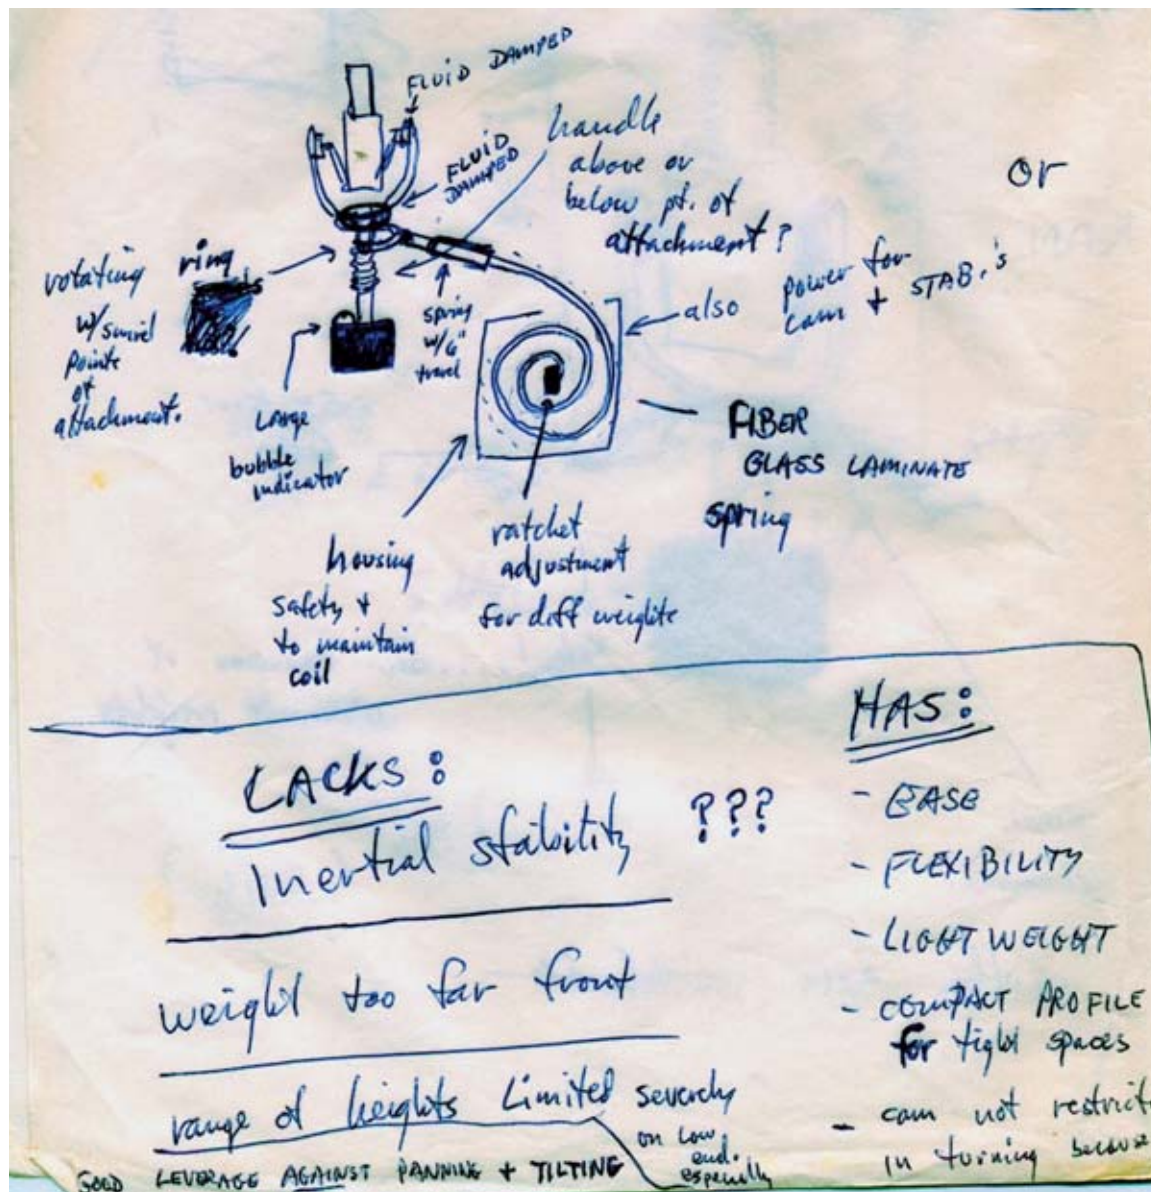 FLUID DAMPED
FLUID
DAMPED
handle
above or
below pt. of
attachment?
or
rotating ring
w/swivel
points
of
attachment.
spring
w/6"
travel
also
power for
cam + STAB.'s
Large
bubble
indicator
FIBER
GLASS LAMINATE
spring
housing
safety +
to maintain
coil
ratchet
adjustment
for diff weights
LACKS:
Inertial stability ???
weight too far front
range of heights Limited severely
on low
end.
especially
GOOD LEVERAGE AGAINST PANNING + TILTING
HAS:
- EASE
- FLEXIBILITY
- LIGHT WEIGHT
- COMPACT PROFILE
for tight spaces
- cam not restrict
in turning because